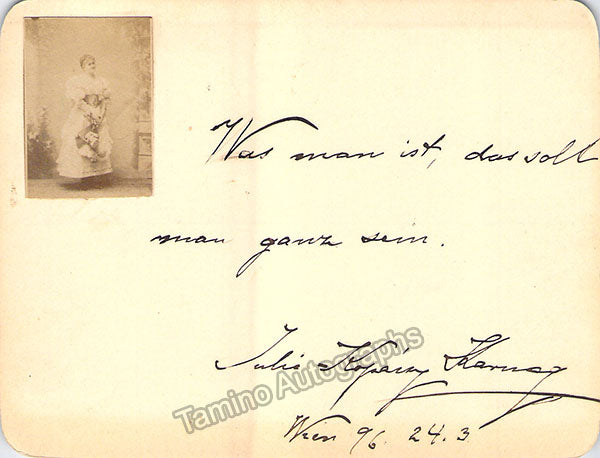 Was man ist, das soll
man ganz sein.
Julie Kopácsy Karczag
Wien 96. 24.3.
Tamino Autographs